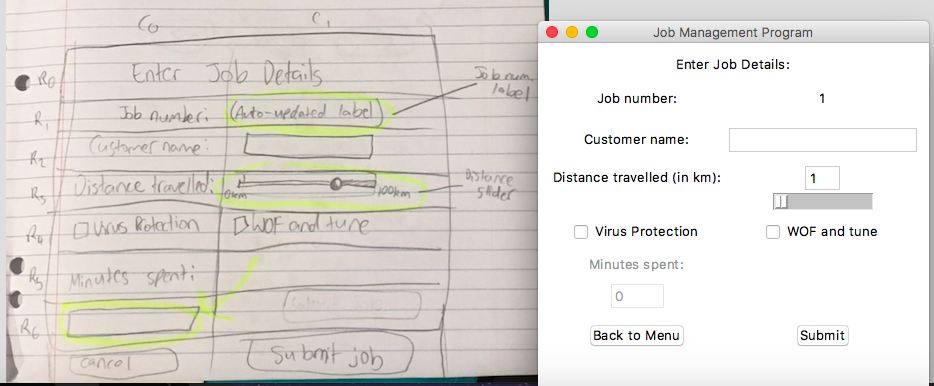 C0 C1
R0 Enter Job Details
Job num. label
R1 Job number: (Auto-updated label)
R2 Customer name:
R3 Distance travelled: 0km 100km
Distance slider
R4 Virus Protection WOF and tune
R5 Minutes spent:
R6
Cancel Submit job
Job Management Program
Enter Job Details:
Job number: 1
Customer name:
Distance travelled (in km): 1
Virus Protection WOF and tune
Minutes spent:
0
Back to Menu Submit